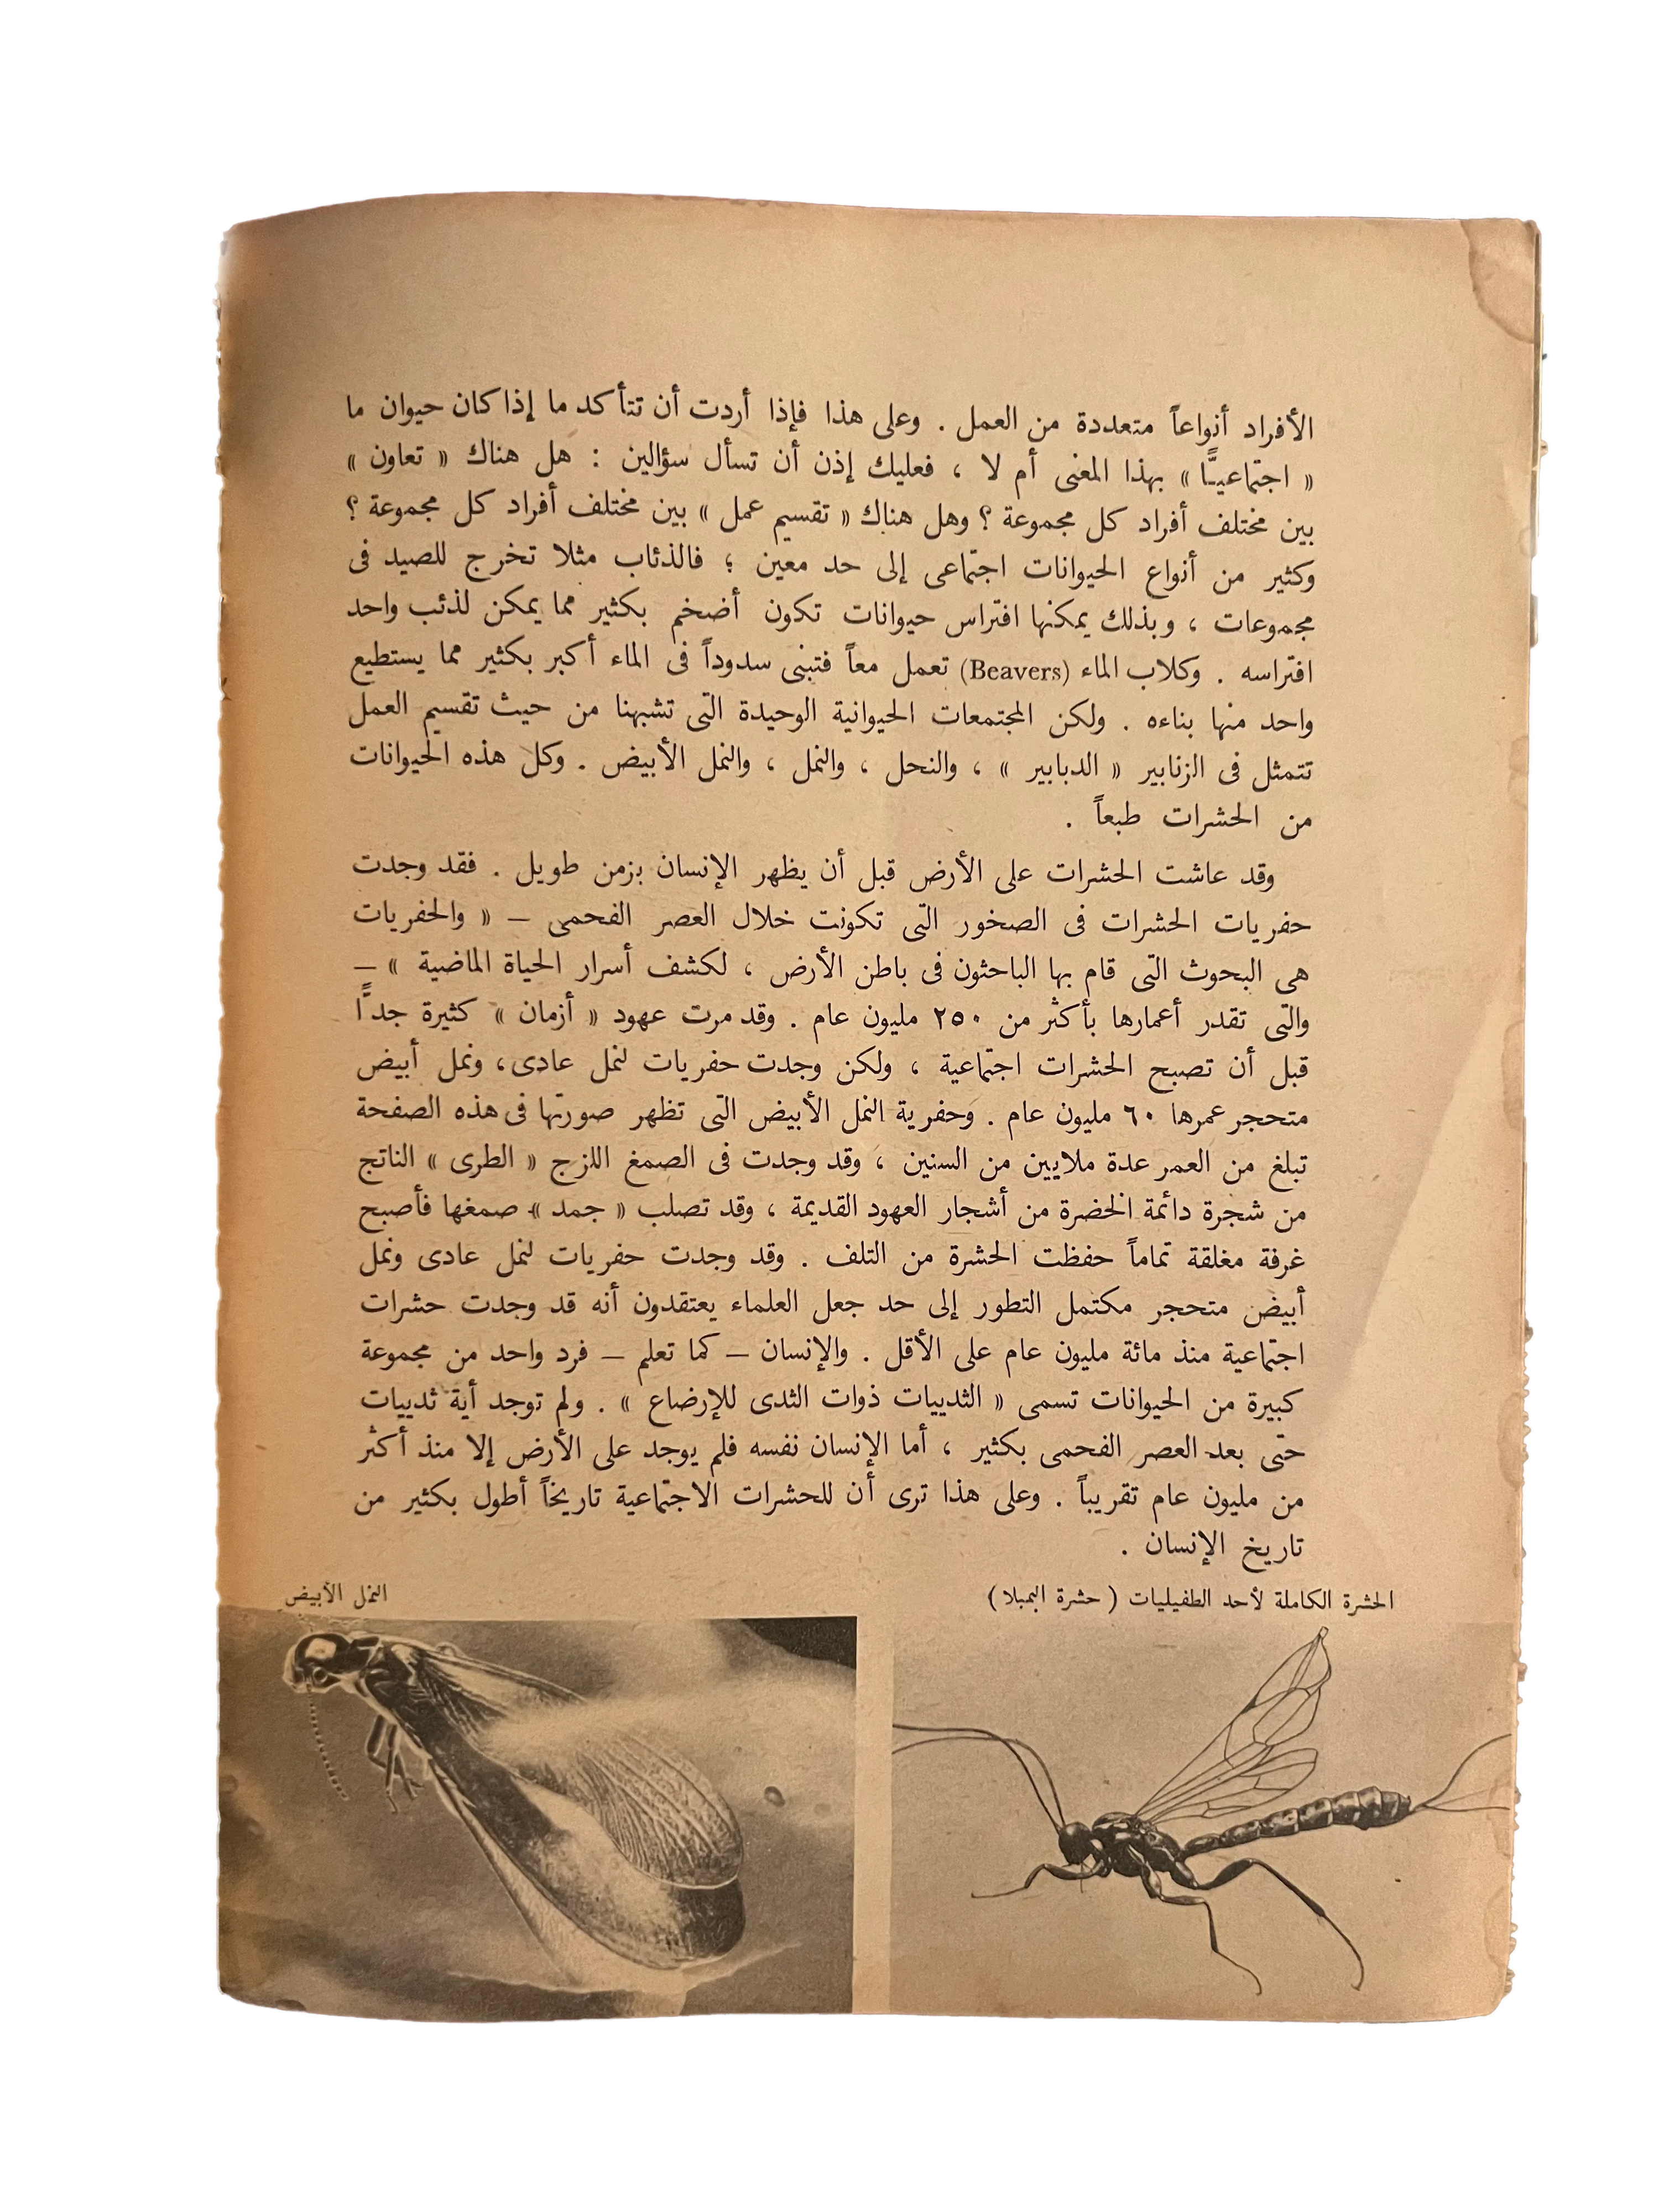 الأفراد أنواعاً متعددة من العمل . وعلى هذا فإذا أردت أن تتأكد ما إذا كان حيوان ما
« اجتماعيـًّا » بهذا المعنى أم لا ، فعليك إذن أن تسأل سؤالين : هل هناك « تعاون »
بين مختلف أفراد كل مجموعة ؟ وهل هناك « تقسيم عمل » بين مختلف أفراد كل مجموعة ؟
وكثير من أنواع الحيوانات اجتماعى إلى حد معين ؛ فالذئاب مثلا تخرج للصيد فى
مجموعات ، وبذلك يمكنها افتراس حيوانات تكون أضخم بكثير مما يمكن لذئب واحد
افتراسه . وكلاب الماء (Beavers) تعمل معاً فتبنى سدوداً فى الماء أكبر بكثير مما يستطيع
واحد منها بناءه . ولكن المجتمعات الحيوانية الوحيدة التى تشبهنا من حيث تقسيم العمل
تتمثل فى الزنابير « الدبابير » ، والنحل ، والنمل ، والنمل الأبيض . وكل هذه الحيوانات
من الحشرات طبعاً .
وقد عاشت الحشرات على الأرض قبل أن يظهر الإنسان بزمن طويل . فقد وجدت
حفريات الحشرات فى الصخور التى تكونت خلال العصر الفحمى – « والحفريات
هى البحوث التى قام بها الباحثون فى باطن الأرض ، لكشف أسرار الحياة الماضية » –
والتى تقدر أعمارها بأكثر من ٢٥٠ مليون عام . وقد مرت عهود « أزمان » كثيرة جدًّا
قبل أن تصبح الحشرات اجتماعية ، ولكن وجدت حفريات لنمل عادى، ونمل أبيض
متحجر عمرها ٦٠ مليون عام . وحفرية النمل الأبيض التى تظهر صورتها فى هذه الصفحة
تبلغ من العمر عدة ملايين من السنين ، وقد وجدت فى الصمغ اللزج « الطرى » الناتج
من شجرة دائمة الخضرة من أشجار العهود القديمة ، وقد تصلب « جمد » صمغها فأصبح
غرفة مغلقة تماماً حفظت الحشرة من التلف . وقد وجدت حفريات لنمل عادى ونمل
أبيض متحجر مكتمل التطور إلى حد جعل العلماء يعتقدون أنه قد وجدت حشرات
اجتماعية منذ مائة مليون عام على الأقل . والإنسان – كما تعلم – فرد واحد من مجموعة
كبيرة من الحيوانات تسمى « الثدييات ذوات الثدى للإرضاع » . ولم توجد أية ثدييات
حتى بعد العصر الفحمى بكثير ، أما الإنسان نفسه فلم يوجد على الأرض إلا منذ أكثر
من مليون عام تقريباً . وعلى هذا ترى أن للحشرات الاجتماعية تاريخاً أطول بكثير من
تاريخ الإنسان .
الحشرة الكاملة لأحد الطفيليات ( حشرة البمبلا )
النمل الأبيض